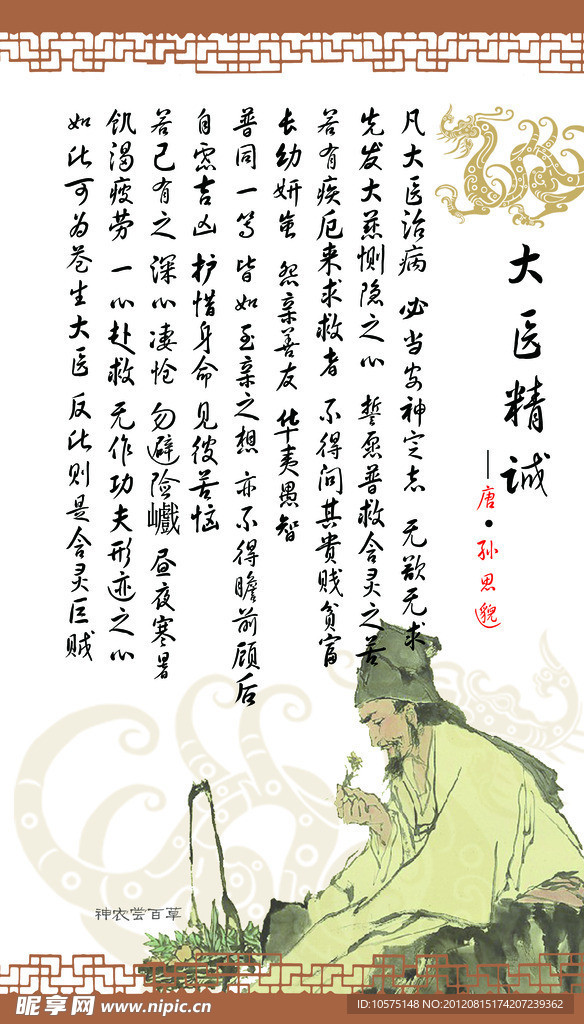 大医精诚
—唐·孙思邈
凡大医治病 必当安神定志 无欲无求
先发大慈恻隐之心 誓愿普救含灵之苦
若有疾厄来求救者 不得问其贵贱贫富
长幼妍蚩 怨亲善友 华夷愚智
普同一等 皆如至亲之想 亦不得瞻前顾后
自虑吉凶 护惜身命 见彼苦恼
若己有之 深心凄怆 勿避险巇 昼夜寒暑
饥渴疲劳 一心赴救 无作功夫形迹之心
如此可为苍生大医 反此则是含灵巨贼
神农尝百草
昵享网 www.nipic.cn
ID:10575148 NO:20120815174207239362